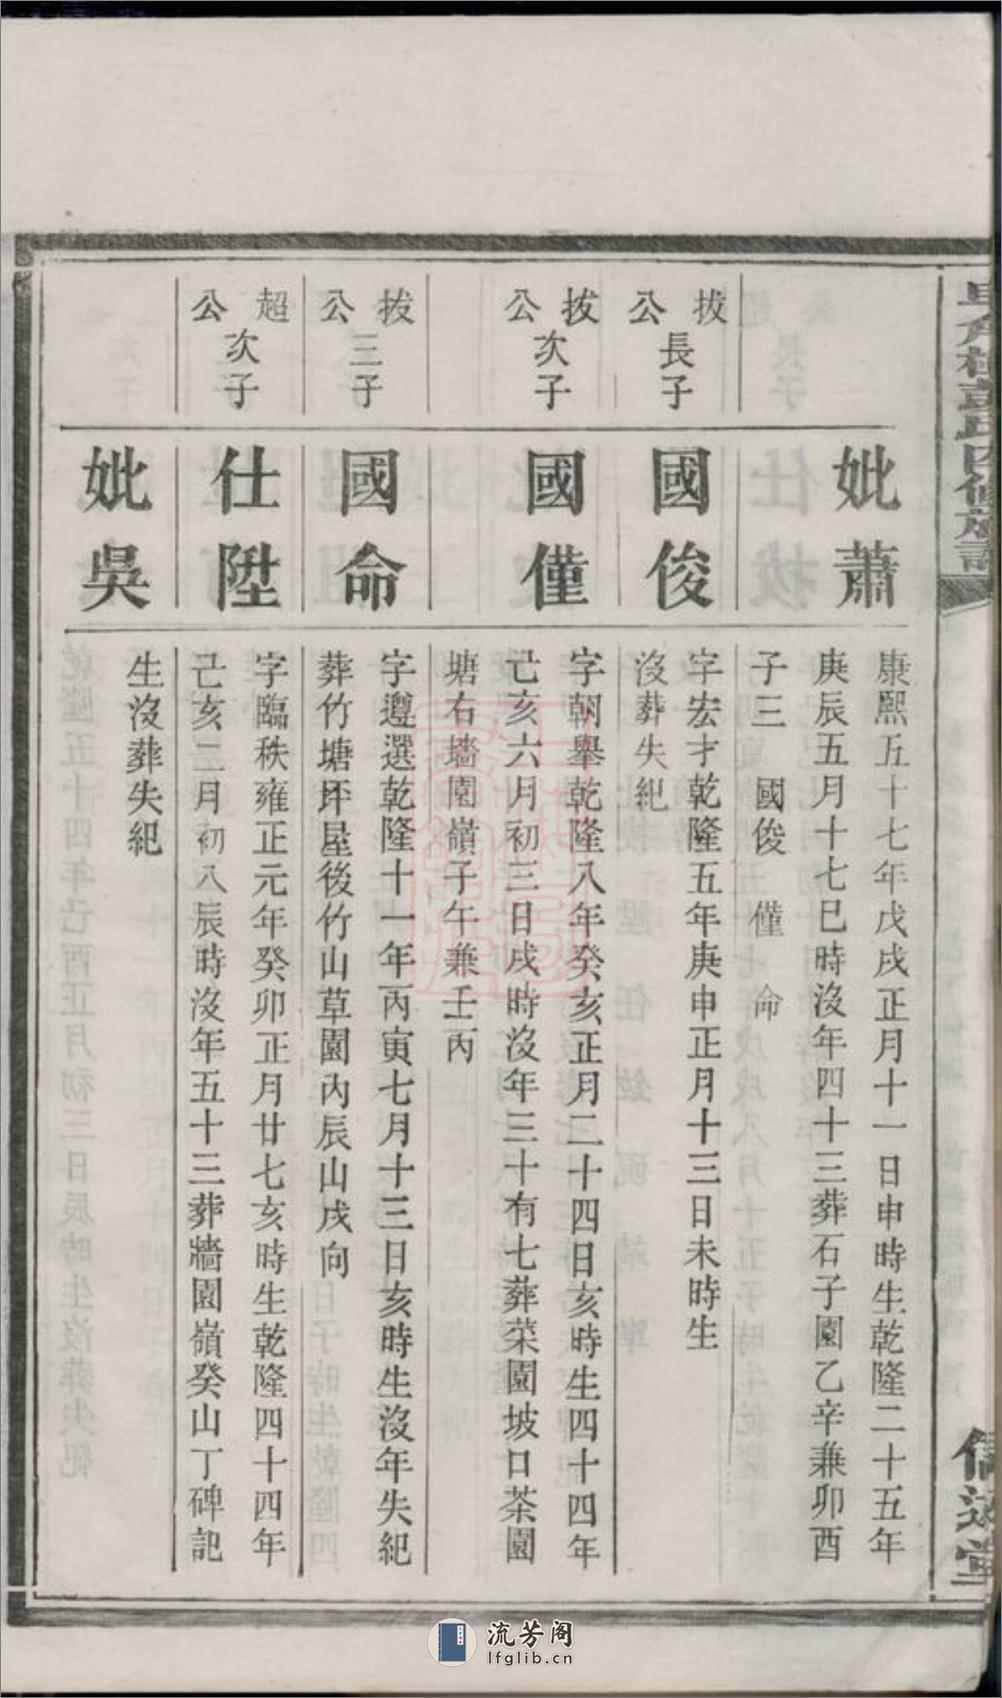 妣蕭
康熙五十七年戊戌正月十一日申時生乾隆二十五年
庚辰五月十七巳時沒年四十三葬石子園乙辛兼卯酉
子三 國俊 僅 命
拔公長子
國俊
字宏才乾隆五年庚申正月十三日未時生
沒葬失紀
拔公次子
國僅
字朝舉乾隆八年癸亥正月二十四日亥時生四十四年
己亥六月初三日戌時沒年三十有七葬菜園坡口茶園
塘右墻園嶺子午兼壬丙
拔公三子
國命
字遵選乾隆十一年丙寅七月十三日亥時生沒年失紀
葬竹塘坪屋後竹山草園內辰山戌向
超公次子
仕陞
字臨秩雍正元年癸卯正月廿七亥時生乾隆四十四年
己亥二月初八辰時沒年五十三葬牆園嶺癸山丁碑記
妣吳
生沒葬失紀
流芳阁
lfglib.cn